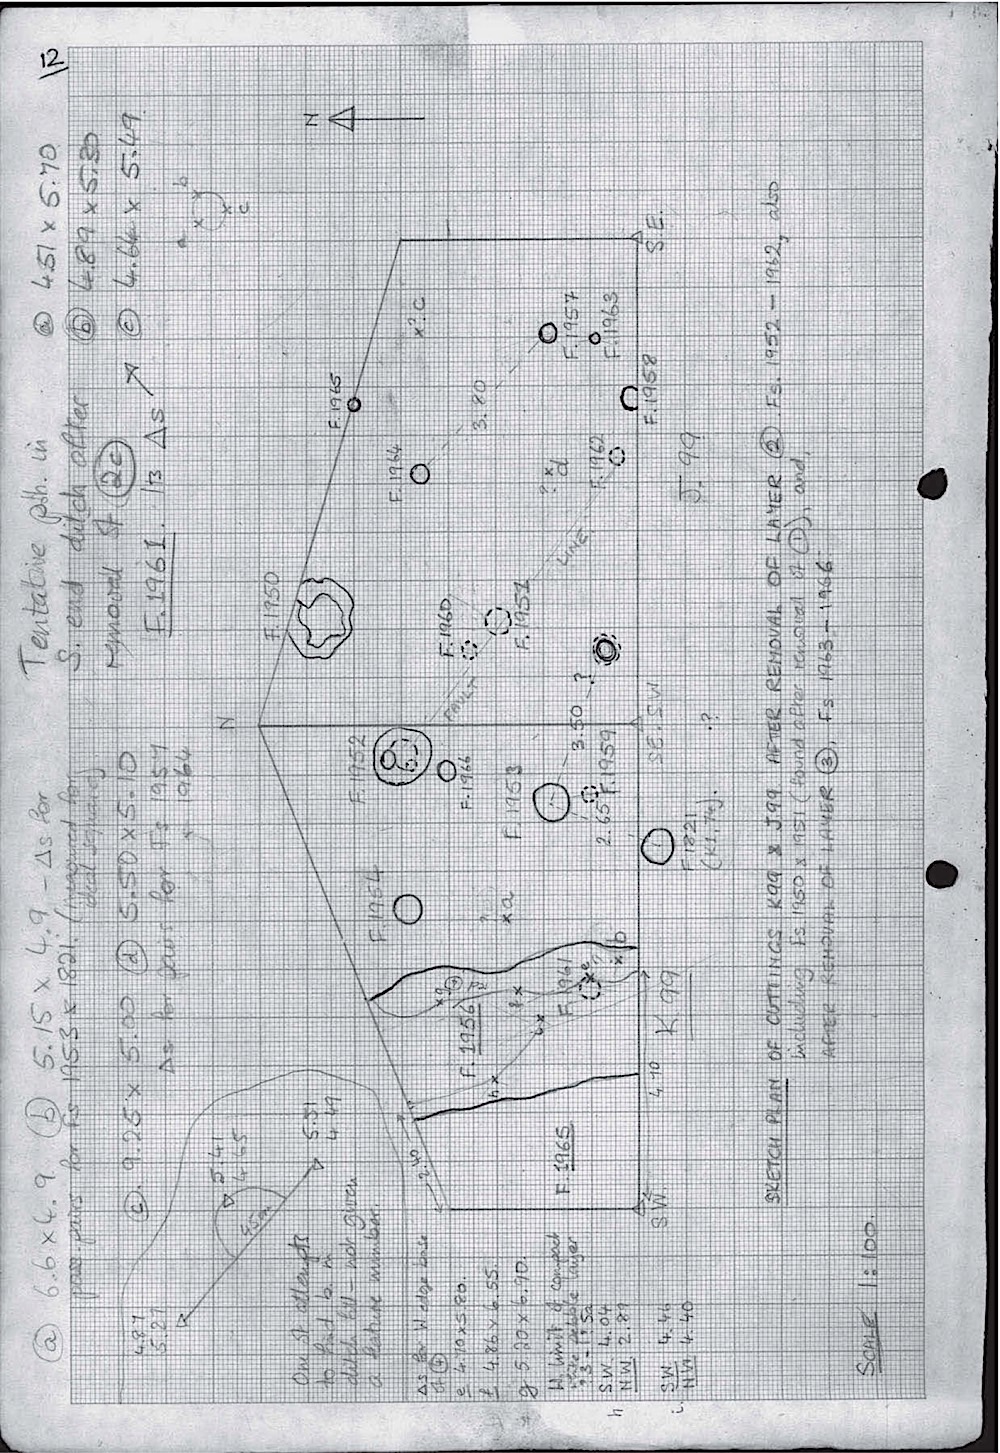 12
(a) 6.6 x 4.9 (b) 5.15 x 4.9 - Δs for
pairs for Fs 1953 x 1821. (measured for
local sequence)
(c) 9.25 x 5.00 (d) 5.50 x 5.10
Δs for pairs for Fs 1957
1964
Tentative ph. in
S. end ditch after
removal of (2c)
F.1961. Δs
(a) 4.51 x 5.70
(b) 4.89 x 5.30
(c) 4.64 x 5.49
a
b
c
N
4.87
5.27
5.41
4.65
5.51
4.49
One of attempts
to find b. in
ditch fill - not given
a feature number.
Δs for W edge
e 4.70 x 5.80
f 4.86 x 6.55.
g 5.20 x 6.90.
W limit of compact
layer
h SW 4.04
NW 2.89
i. SW 4.46
NW 4.40
N
F.1950
F.1965
F.1964
x?c
3.80
F.1952
F.1966
F.1954
F.1960
F.1951
FAULT
LINE
?x
d
F.1957
F.1963
F.1962
F.1958
F.1953
3.50 - ?
2.65
F.1959
?
xa
F.1956
F.1961
b
h
2.40
F.1965
4.10
S.W.
K 99
F.1821
(K1.74).
SE.SW
.?
J.99
S.E.
SKETCH PLAN OF CUTTINGS K99 & J99 AFTER REMOVAL OF LAYER (2) Fs. 1952 - 1962, also
including Fs 1950 x 1951 (found after removal of (1)), and,
AFTER REMOVAL OF LAYER (3), Fs 1963 - 1966.
SCALE 1:100.